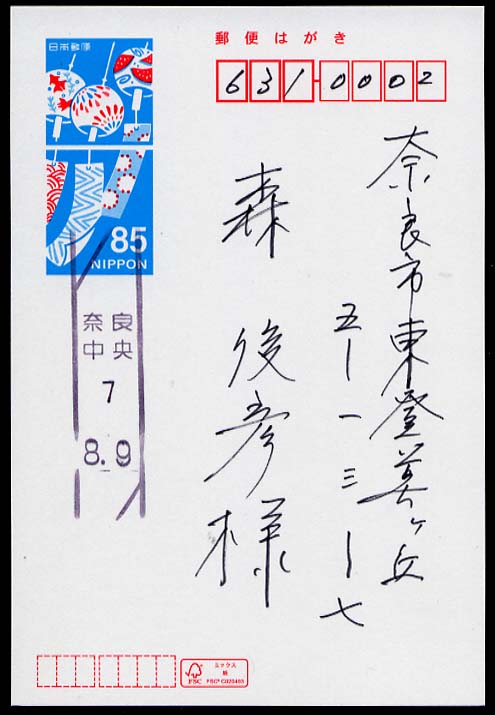 郵便はがき
631-0002
日本郵便
85
NIPPON
奈良市東登美ヶ丘
五-一三-七
森 俊彦様
奈良
中央
7
8.9
ミックス
紙
FSC
FSC® C020403